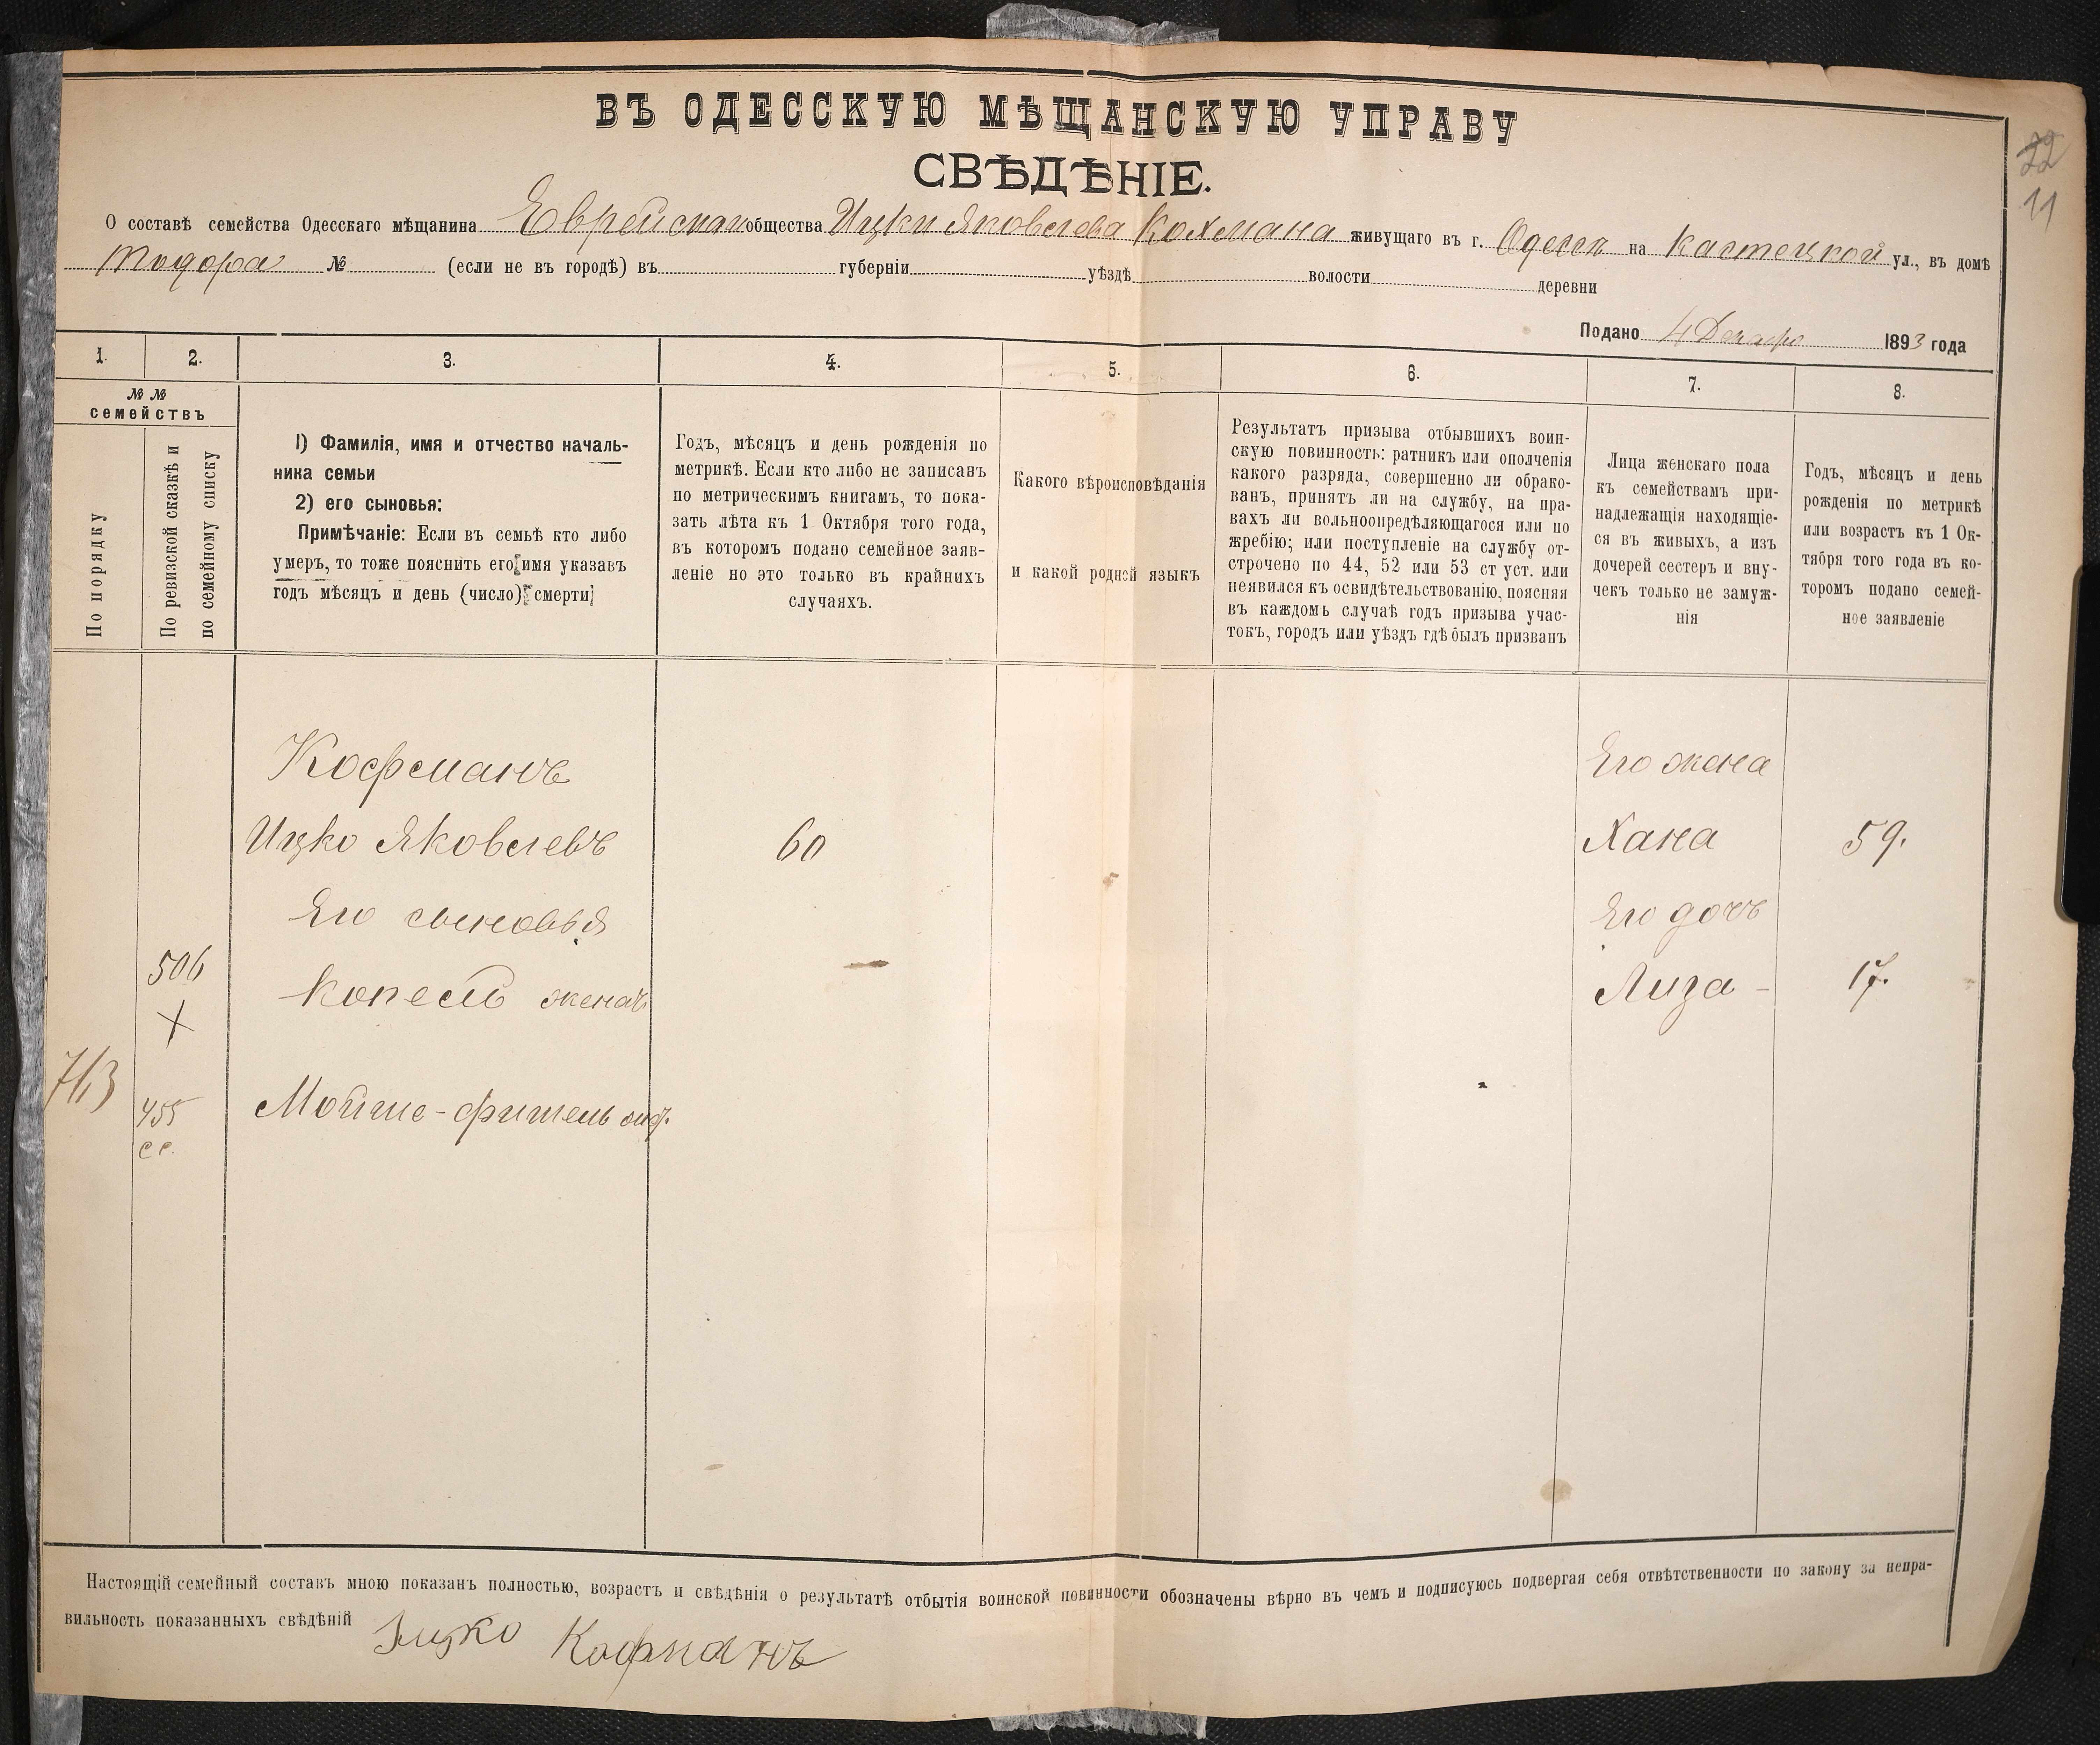 ВЪ ОДЕССКУЮ МѢЩАНСКУЮ УПРАВУ
СВѢДѢНІЕ.
22
11
О составѣ семейства Одесскаго мѣщанина Еврейскаго общества Ицки Яковлева Кохмана живущаго въ г. Одессѣ на Костецкой ул., въ домѣ
Тодора № (если не въ городѣ) въ губерніи уѣздѣ волости деревни
Подано 4 Декабр 1893 года
1. 2. 3. 4. 5. 6. 7. 8.
№ №
семействъ
По порядку
По ревизской сказкѣ и
по семейному списку
1) Фамилія, имя и отчество началь-
ника семьи
2) его сыновья:
Примѣчаніе: Если въ семьѣ кто либо
умеръ, то тоже пояснить его имя указавъ
годъ мѣсяцъ и день (число) смерти
Годъ, мѣсяцъ и день рожденія по
метрикѣ. Если кто либо не записанъ
по метрическимъ книгамъ, то пока-
зать лѣта къ 1 Октября того года,
въ которомъ подано семейное заяв-
леніе но это только въ крайнихъ
случаяхъ.
Какого вѣроисповѣданія
и какой родной языкъ
Результатъ призыва отбывшихъ воин-
скую повинность: ратникъ или ополченія
какого разряда, совершенно ли обрако-
ванъ, принятъ ли на службу, на пра-
вахъ ли вольноопредѣляющагося или по
жребію; или поступленіе на службу от-
строчено по 44, 52 или 53 ст уст. или
неявился къ освидѣтельствованію, поясняя
въ каждомъ случаѣ годъ призыва учас-
токъ, городъ или уѣздъ гдѣ былъ призванъ
Лица женскаго пола
къ семействамъ при-
надлежащія находящіе-
ся въ живыхъ, а изъ
дочерей сестеръ и вну-
чекъ только не замуж-
нія
Годъ, мѣсяцъ и день
рожденія по метрикѣ
или возрастъ къ 1 Ок-
тября того года въ ко-
торомъ подано семей-
ное заявленіе
Кофманъ
Его жена
Ицко Яковлевъ
60
Хана
59.
Его сыновья
Его дочь
506
Копель женатъ
Лиза -
17.
X
713
455
сс.
Мойше-Фишель
Настоящій семейный составъ мною показанъ полностью, возрастъ и свѣдѣнія о результатѣ отбытія воинской повинности обозначены вѣрно въ чемъ и подписуюсь подвергая себя отвѣтственности по закону за непра-
вильность показанныхъ свѣдѣній
Ицко Кофманъ